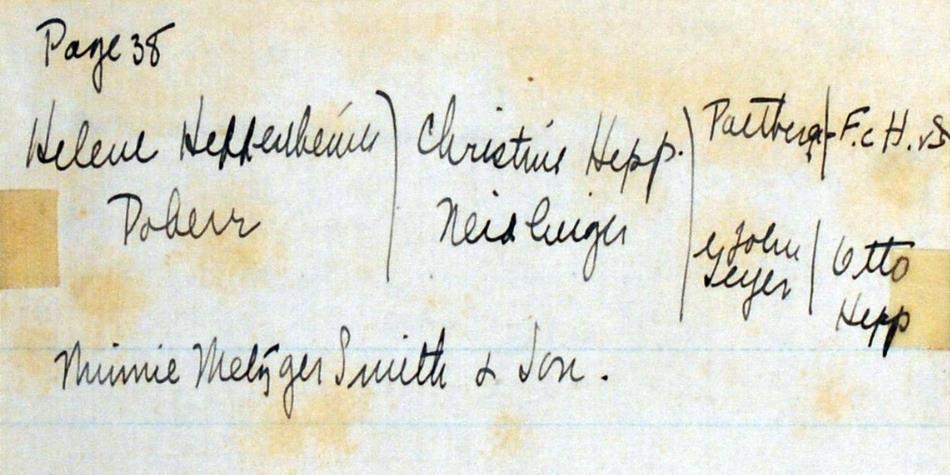 Page 38
Helene Heppenheimer ) Christine Hepp. ) Poetberg | F.C.H.v.S
Doberr Neidlinger John | Otto
Geyer Hepp
Minnie Metzger Smith & Son.